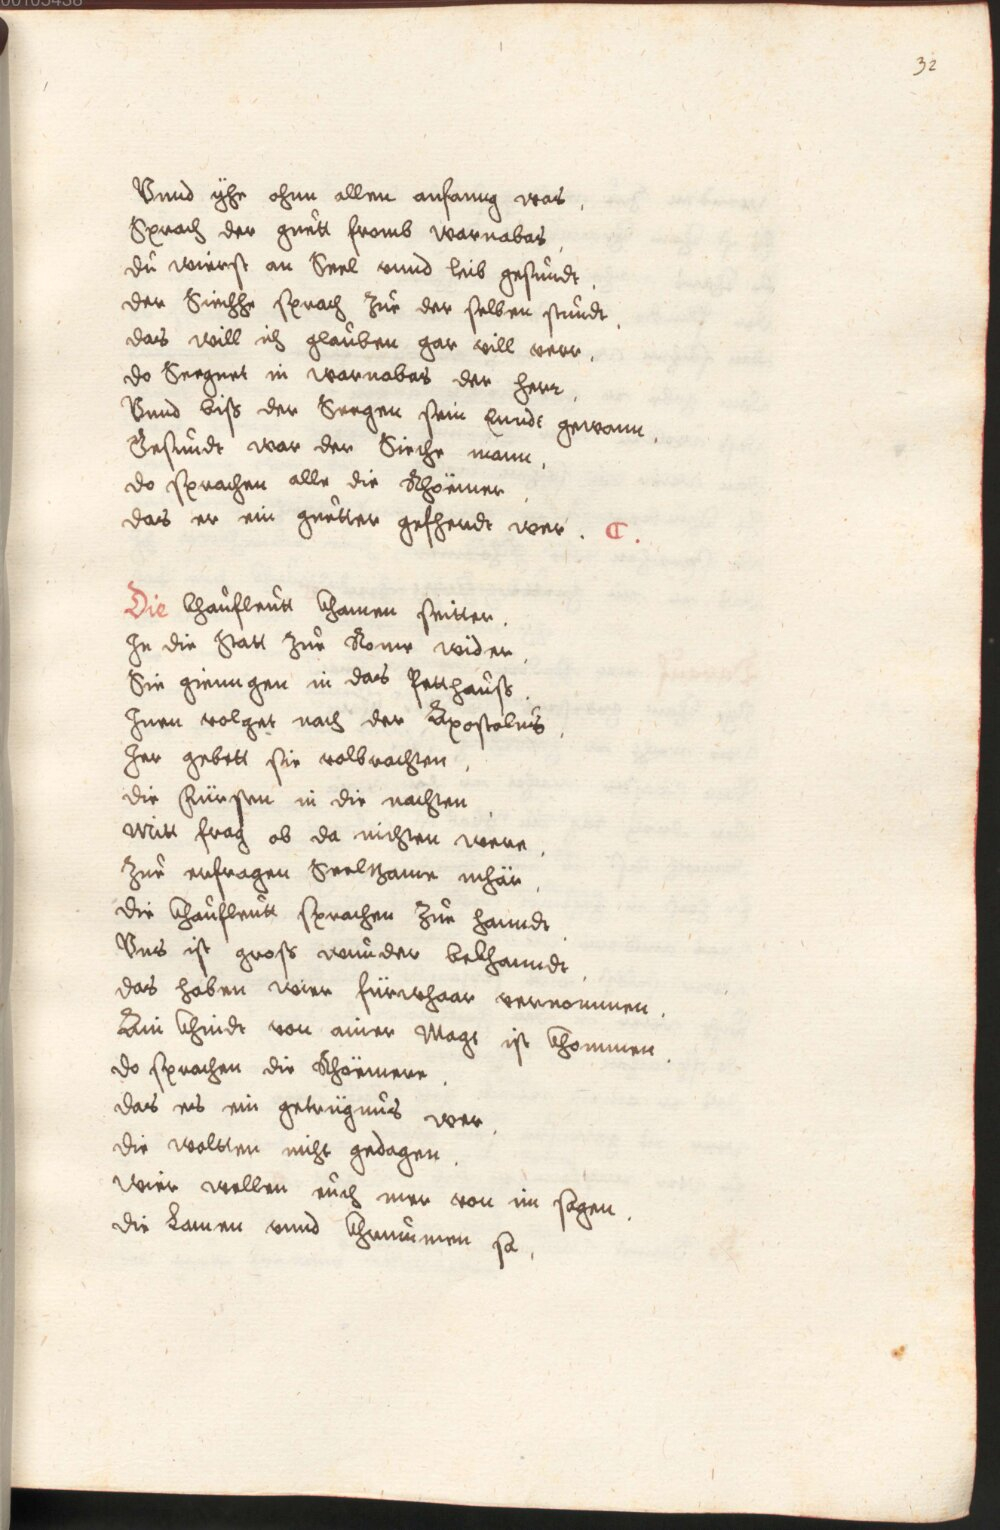 32
Vnnd ÿhe ohnn allen anfanng was,
Sprach der guett fromb warnabas,
dŭ wierst an Seel vnnd leib gesŭndt,
der Siechhe sprach Zŭe der selben stŭndt,
das will ich glaŭben gar vill verr,
do Seegnet in warnabas der herr,
Vnnd biss der Seegen sein Enndt gewann,
Gesŭndt war der Sieche mann,
do sprachen alle die Rhöemer,
das er ein guetter geschendt wer. C.
Die khaŭfleŭtt khamen seitter,
In die Statt Zŭe Rome wider,
Sie giennngen in das Petthaŭss,
Inen volget nach der Apostolŭs,
Ier gebett sie volbrachten,
die Fŭrsten in die nachten,
Mitt frag ob da nichten were,
Zŭe erfragen Seeltzame mhär,
die khaŭfleŭtt sprachen Zŭe hanndt,
Vns ist gross wŭnder bekhanndt,
das haben wier fŭrwhaar vernommen,
Ain khindt von ainer Magt ist khommen,
do sprachen die Rhöemere,
das es ein getrŭgnŭs wer,
die woltten nicht gedagen,
wier wellen eŭch mer von im sagen,
die Lamen vnnd khrŭmmen sa,